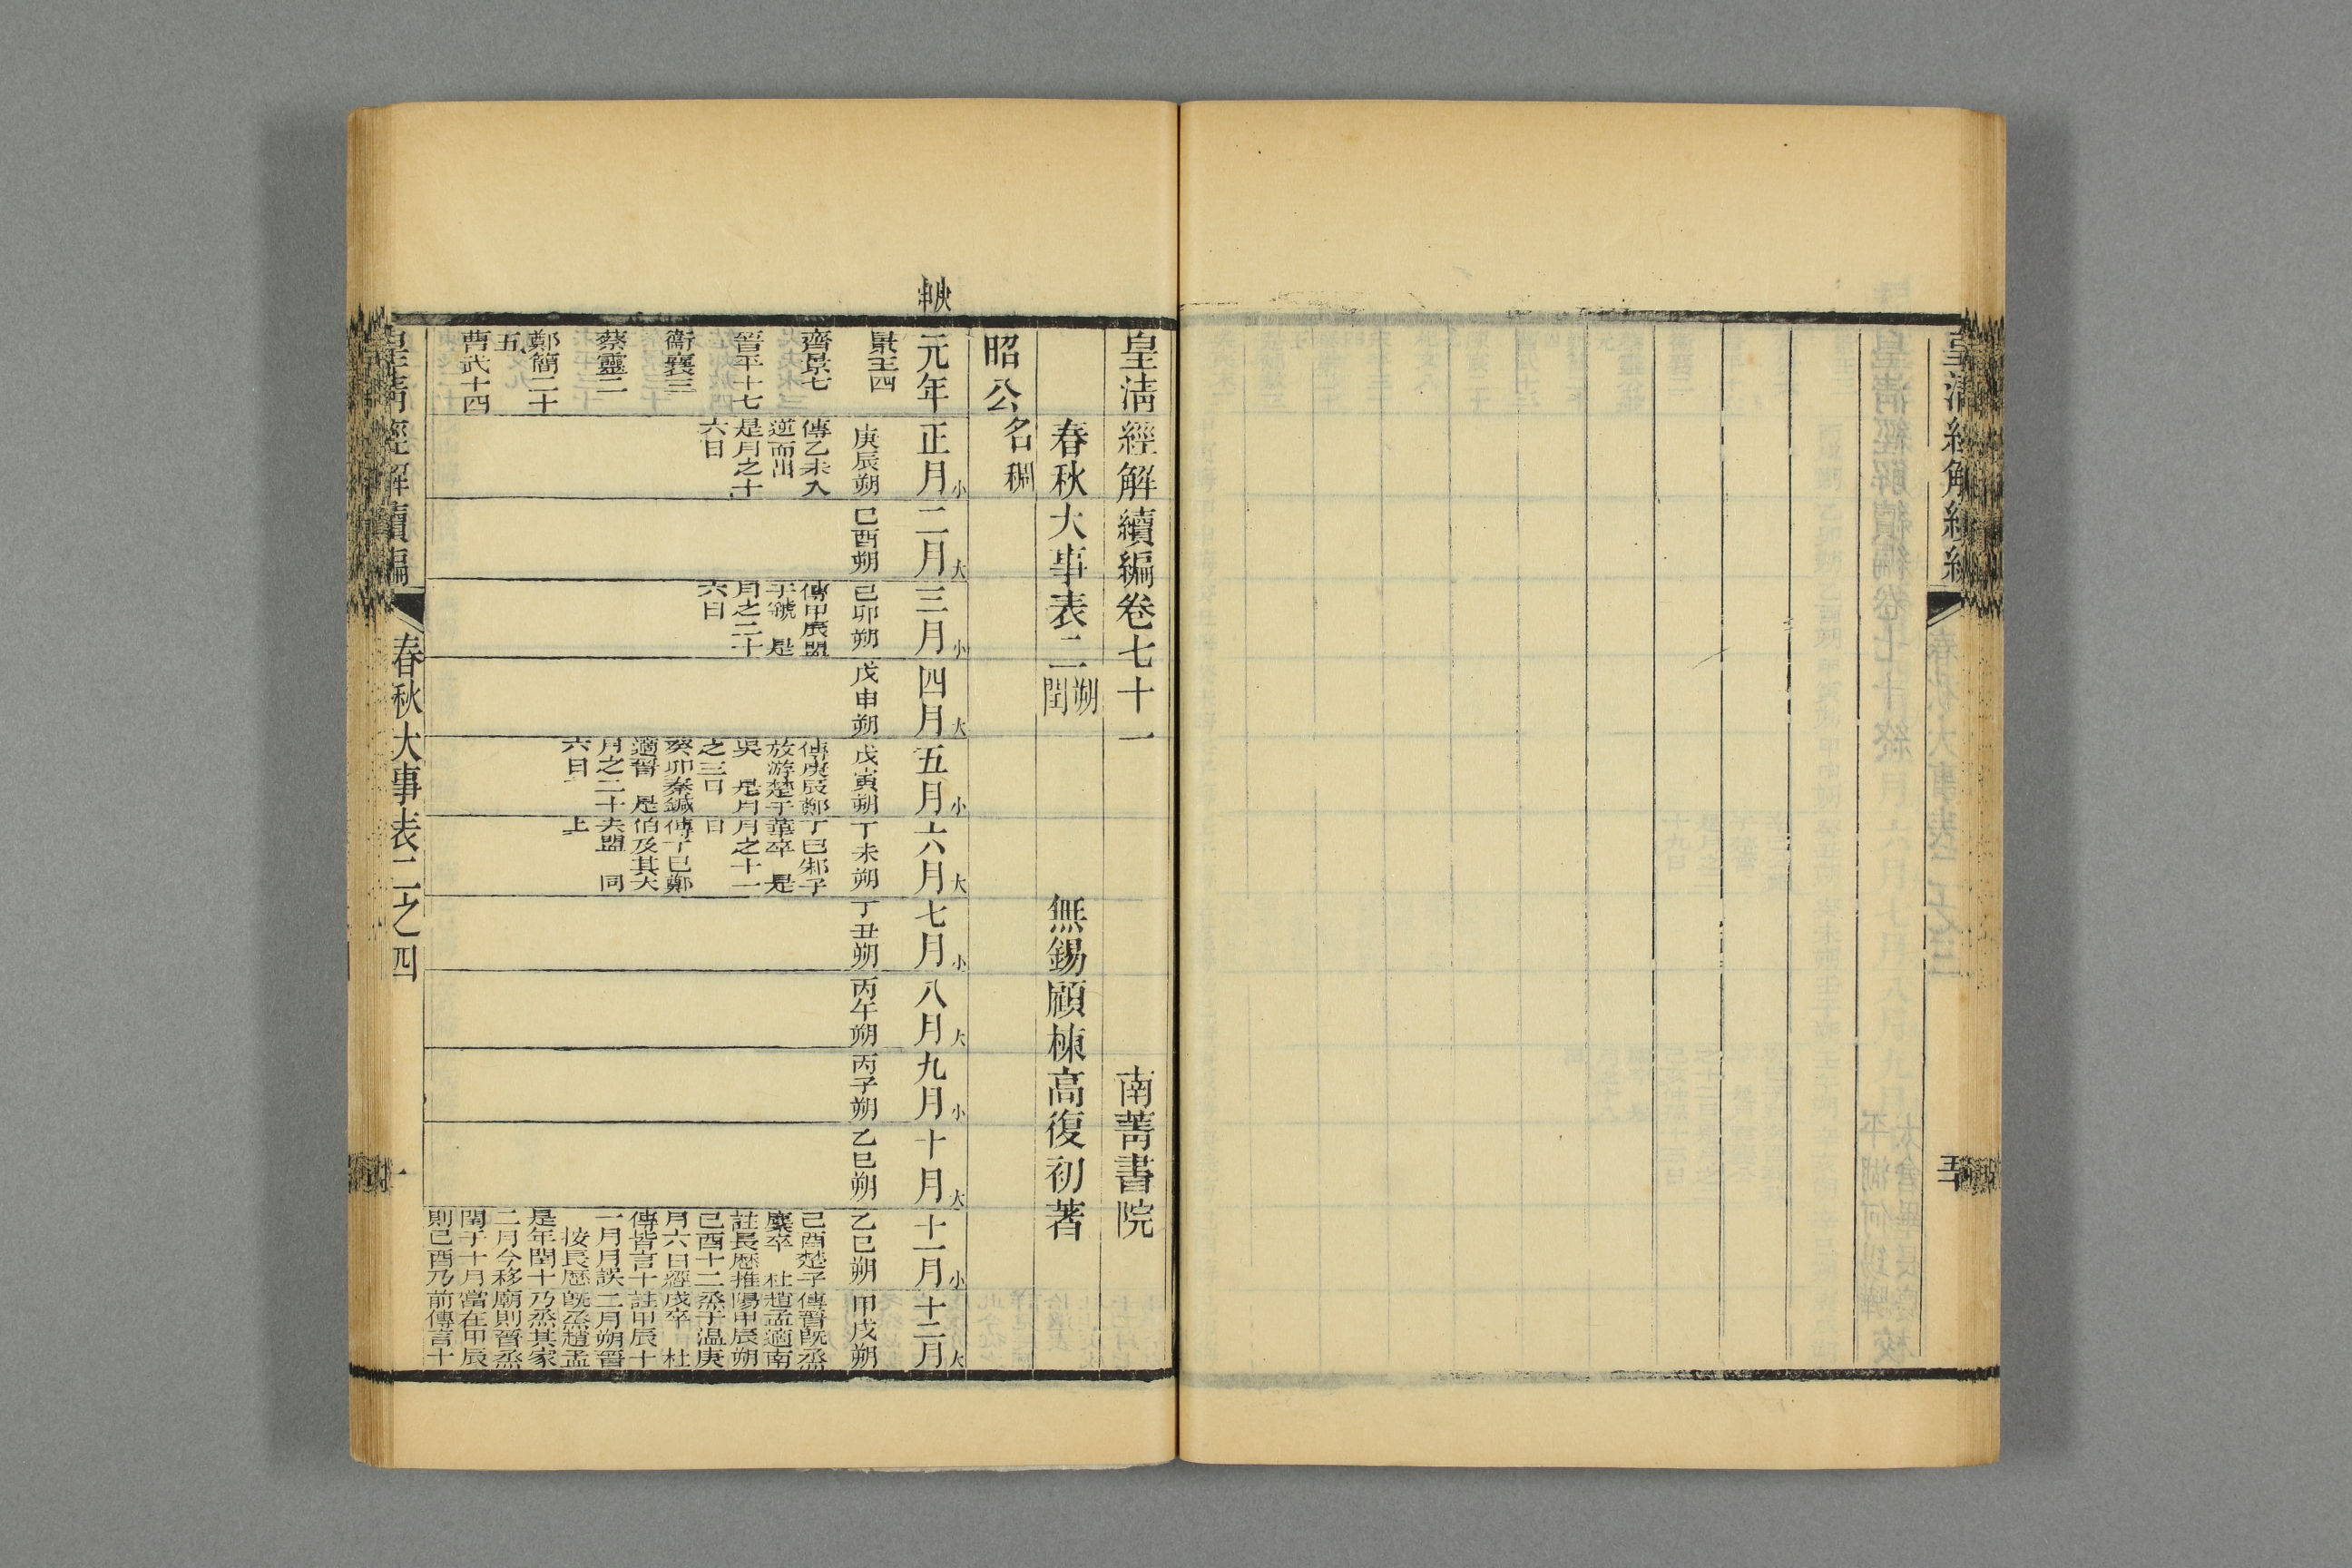 皇清經解續編
皇清經解續編卷七十一
南菁書院
春秋大事表二
朔閏
無錫顧棟高復初著
昭公名稠
元年
景王四
齊景七
晉平十七
衞襄三
蔡靈二
鄭簡二十
五
曹武十四
正月小
庚辰朔
傳乙未入
逆而出
是月之十
六日
二月大
己酉朔
三月小
己卯朔
傳甲辰盟
于虢 是
月之二十
六日
四月大
戊申朔
五月小
戊寅朔
傳庚辰鄭
放游楚于
吳 是月
之三日
癸卯秦鍼
適晉 是
月之二十
六日
六月大
丁未朔
丁巳邾子
華卒 是
月之十一
日
傳丁巳鄭
伯及其大
夫盟 同
上
七月小
丁丑朔
八月大
丙午朔
九月小
丙子朔
十月大
乙巳朔
十一月小
乙巳朔
己酉楚子
麇卒 杜
註長歷推
己酉十二
月六日經
傳皆言十
一月月誤
按長歷
是年閏十
二月今移
閏于十月
則己酉乃
十二月大
甲戌朔
傳晉旣烝
趙孟適南
陽甲辰朔
烝于溫庚
戌卒 杜
註甲辰十
二月朔晉
旣烝趙孟
乃烝其家
廟則晉烝
當在甲辰
前傳言十
皇清經解續編
春秋大事表二之四
一